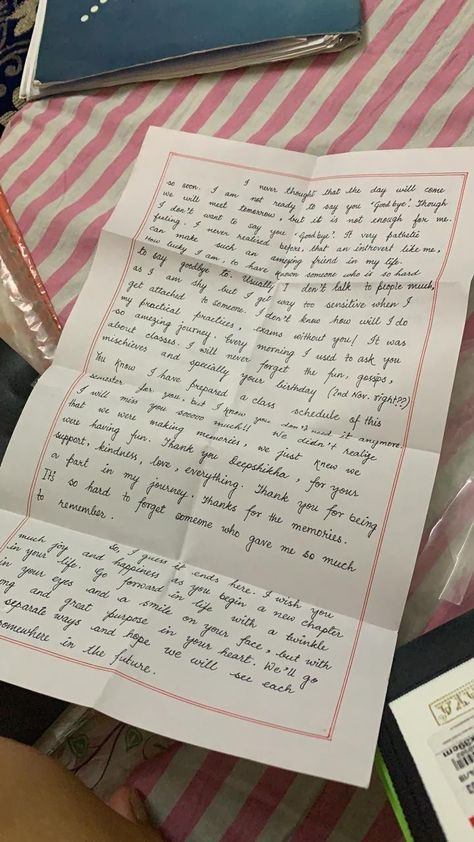 I never thought that the day will come
so soon. I am not ready to say you 'Good bye'. Though
we will meet tomorrow, but it is not enough for me.
I don't want to say you 'Goodbye'. A very pathetic
feeling. I never realized before, that an introvert like me,
can make such an amazing friend in my life.
How lucky I am, to have known someone who is so hard
to say goodbye to. Usually, I don't talk to people much,
as I am shy but I get way too sensitive when I
get attached to someone. I don't know how will I do
my practical practices, exams without you! It was
so amazing journey. Every morning I used to ask you
about classes. I will never forget the fun, gossips,
mischieves and specially your birthday (2nd Nov. right??)
You know I have prepared a class schedule of this
semester for you, but I know you don't need it anymore.
I will miss you sooooo much!! We didn't realize
that we were making memories, we just knew we
were having fun. Thank you Deepshikha, for your
support, kindness, love, everything. Thank you for being
a part in my journey. Thanks for the memories.
It's so hard to forget someone who gave me so much
to remember.
So, I guess it ends here. I wish you
much joy and happiness as you begin a new chapter
in your life. Go forward in life with a twinkle
in your eyes and a smile on your face, but with
and great purpose in your heart. We'll go
separate ways and hope we will see each
somewhere in the future.